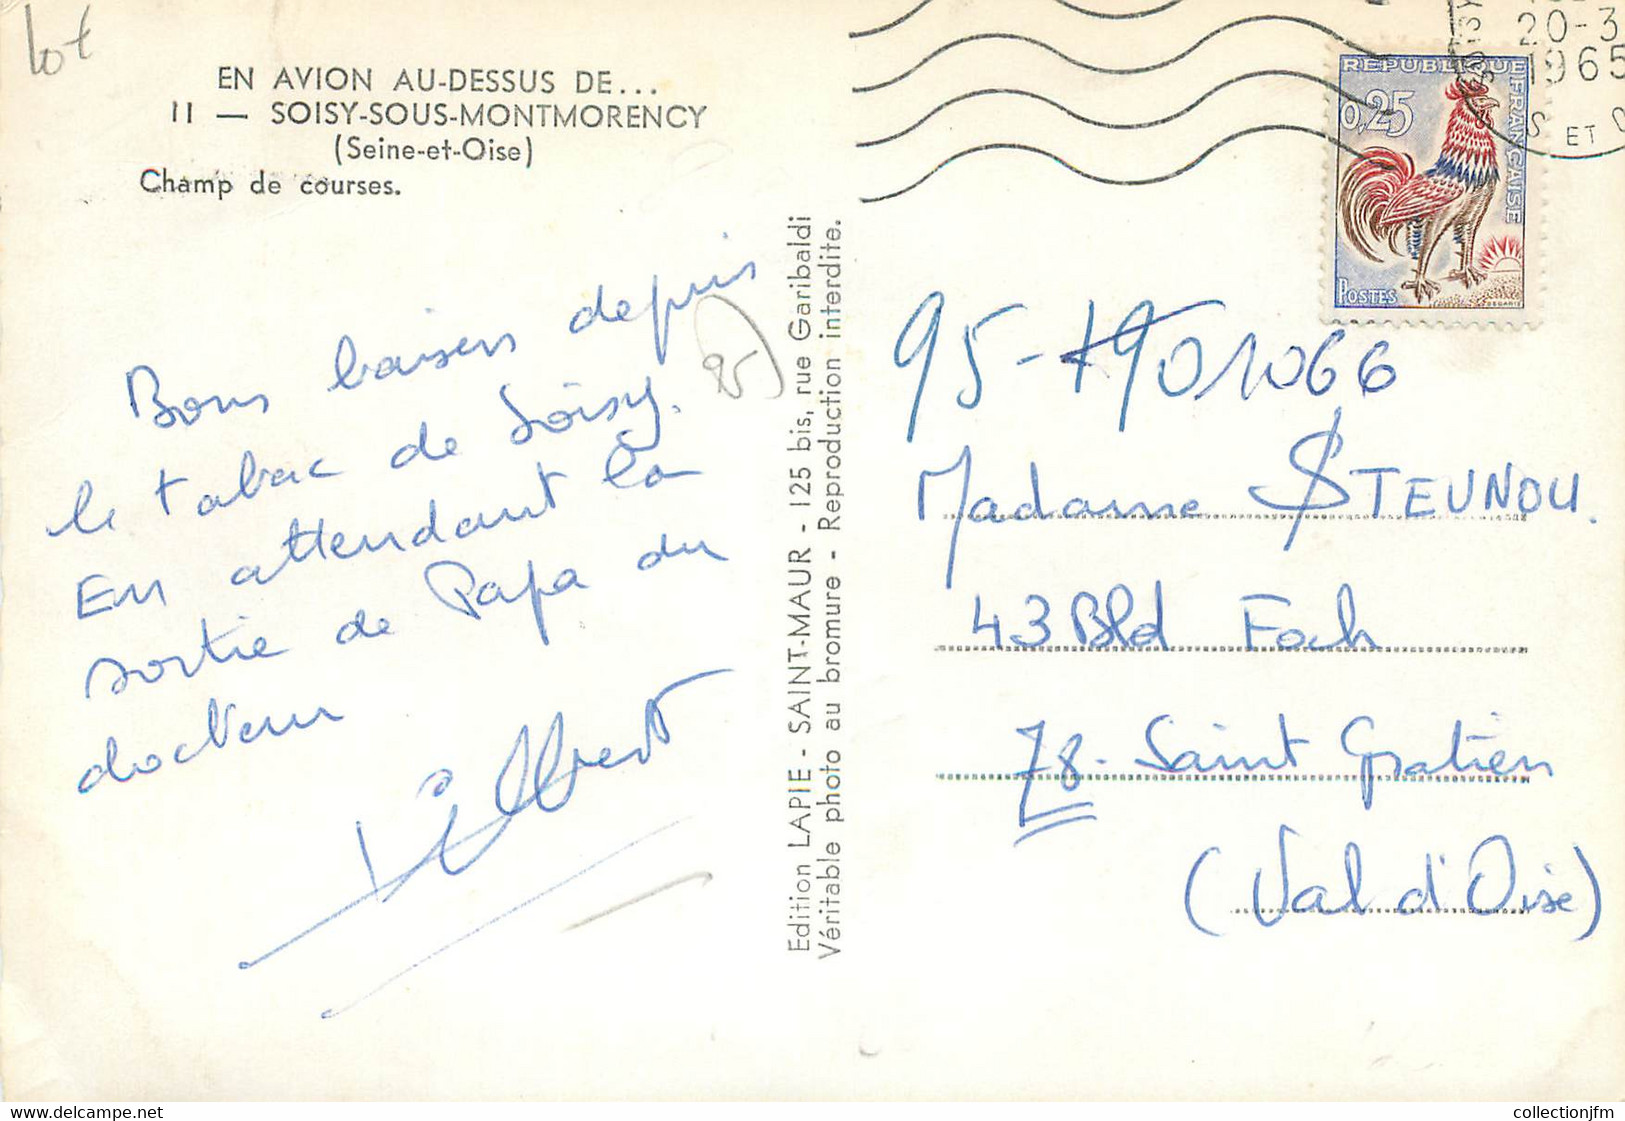 lot
EN AVION AU-DESSUS DE...
11 — SOISY-SOUS-MONTMORENCY
(Seine-et-Oise)
Champ de courses.
Bons baisers depuis
le tabac de Soisy.
En attendant la
sortie de Papa du
docteur
Edition LAPIE - SAINT-MAUR - 125 bis, rue Garibaldi
Véritable photo au bromure - Reproduction interdite.
20-3
1965
S ET O
RÉPUBLIQUE FRANÇAISE
0,25
POSTES
DECARIS
95-1901066
Madame STEUNOU.
43 Bld Foch
78 - Saint Gratien
(Val d'Oise)
collectionjfm